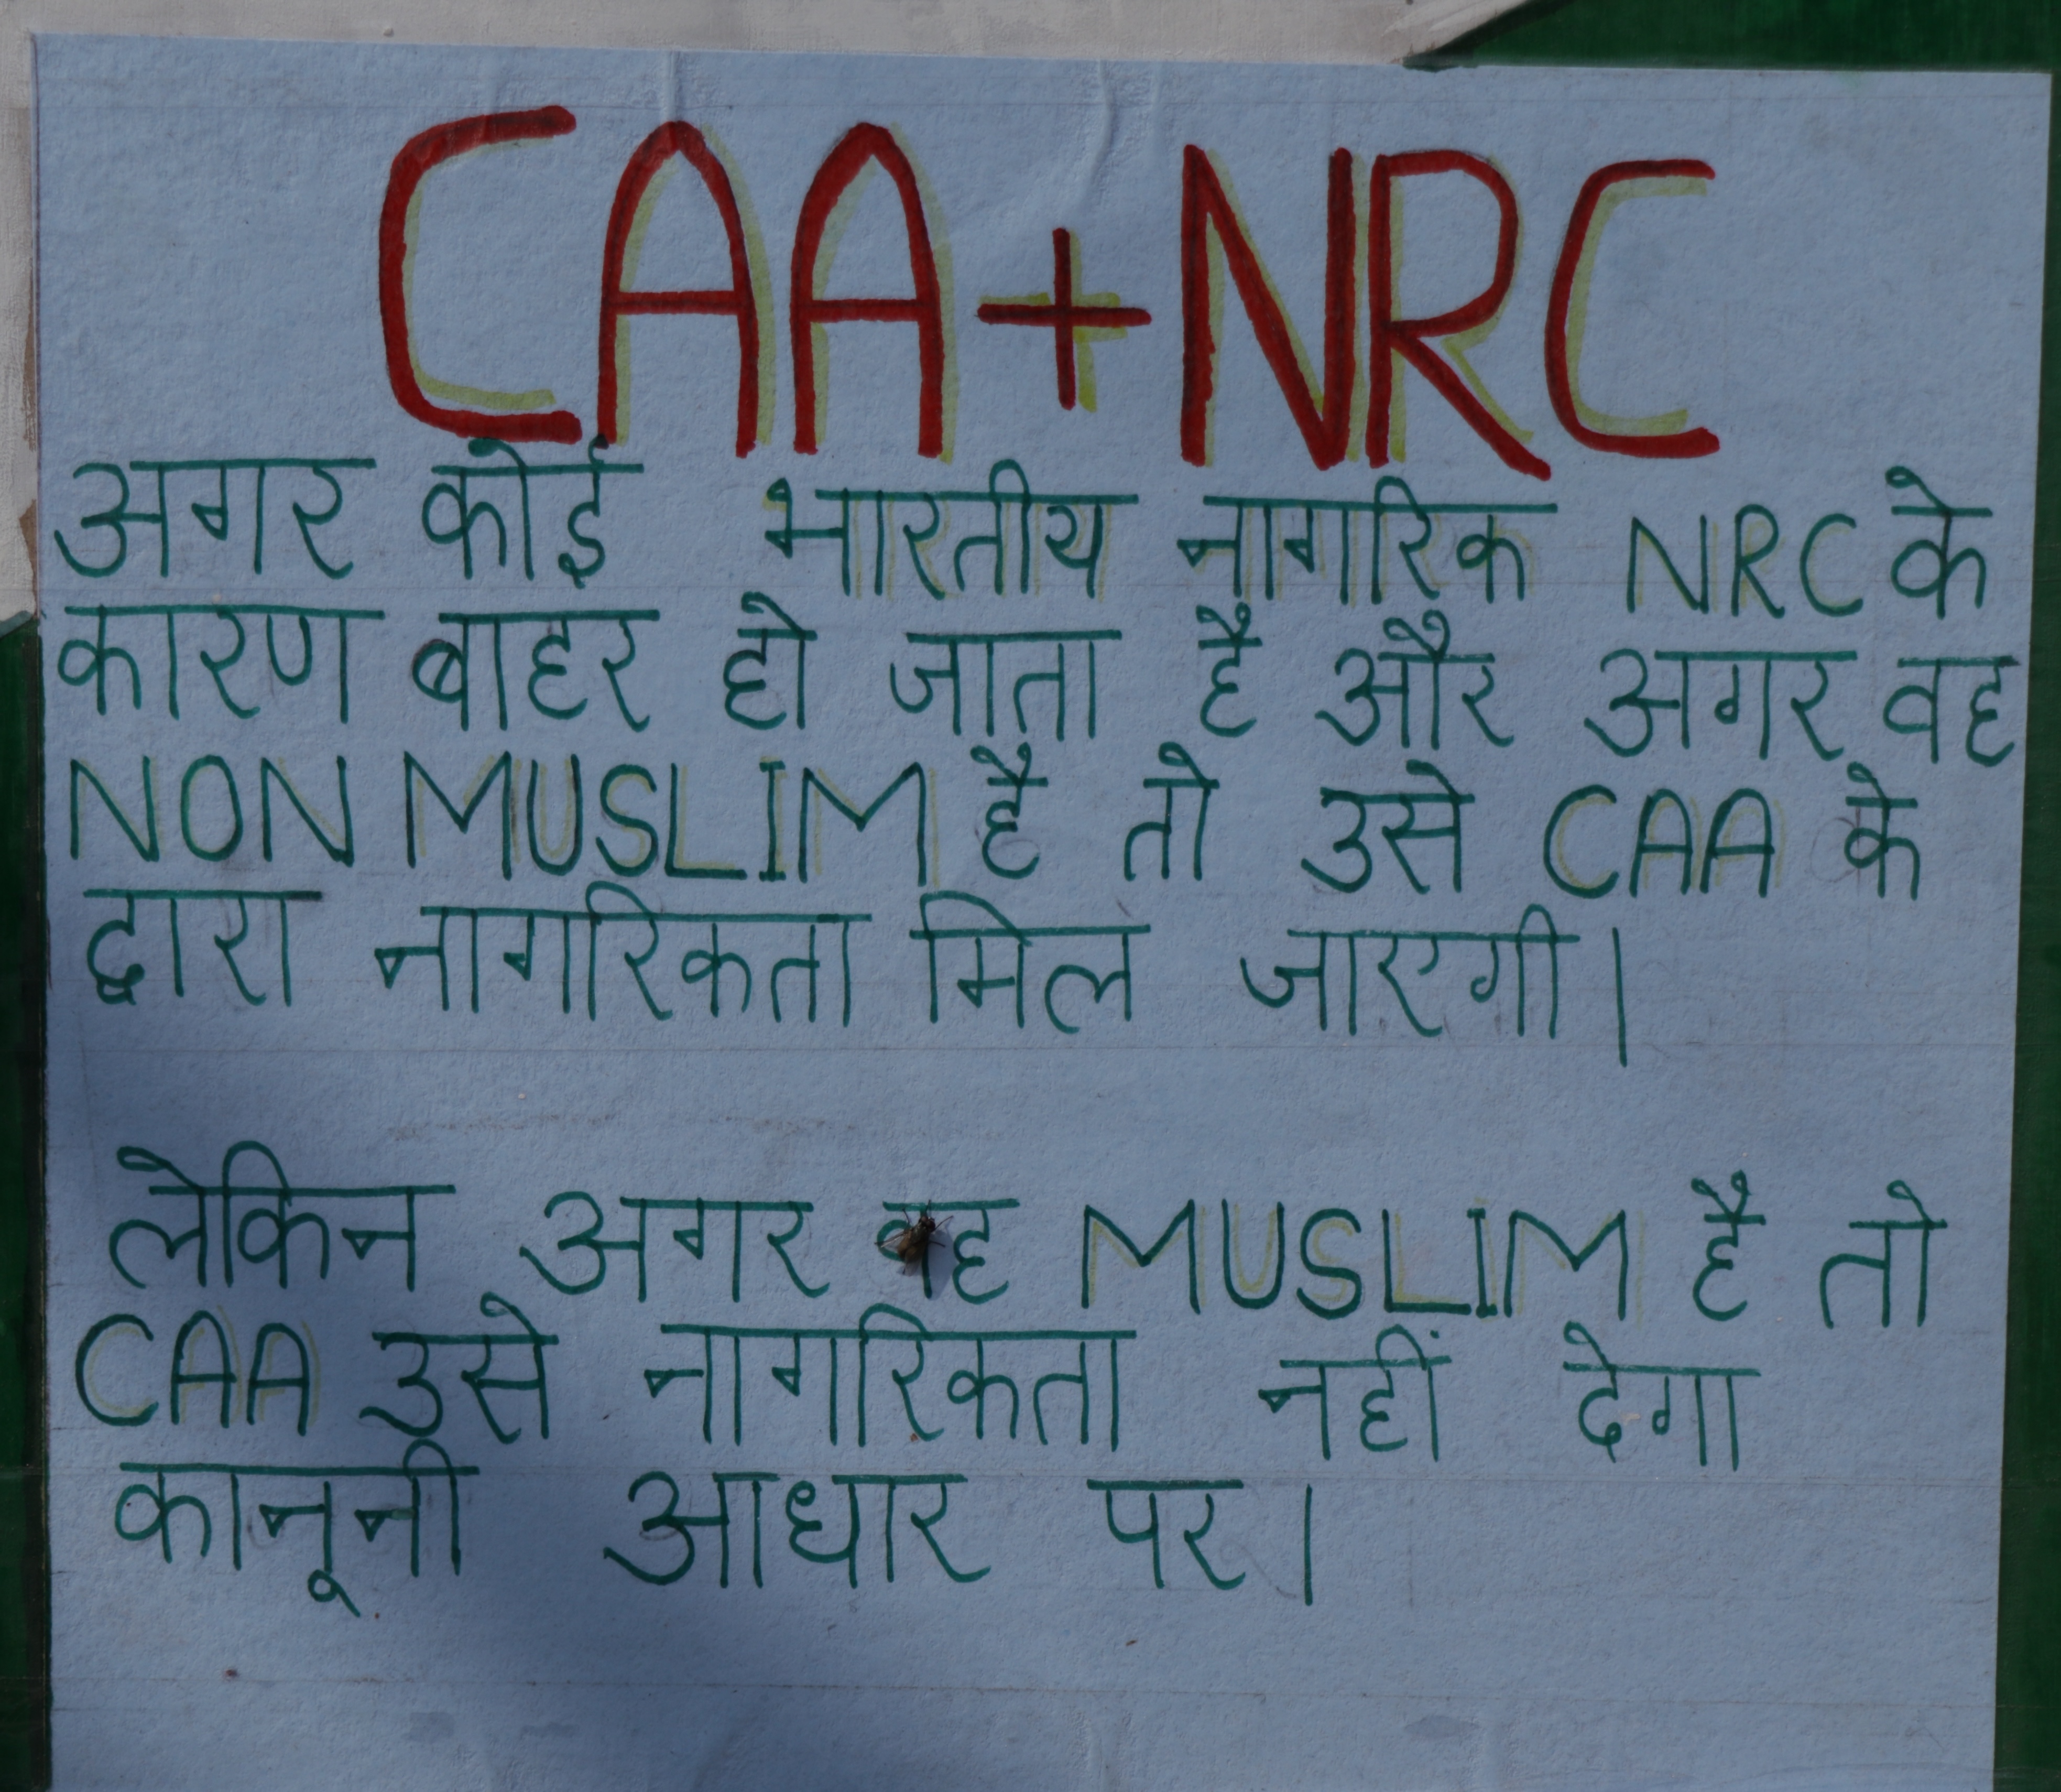 CAA+NRC
अगर कोई भारतीय नागरिक NRC के
कारण बाहर हो जाता है और अगर वह
NON MUSLIM है तो उसे CAA के
द्वारा नागरिकता मिल जाएगी।
लेकिन अगर वह MUSLIM है तो
CAA उसे नागरिकता नहीं देगा
कानूनी आधार पर।